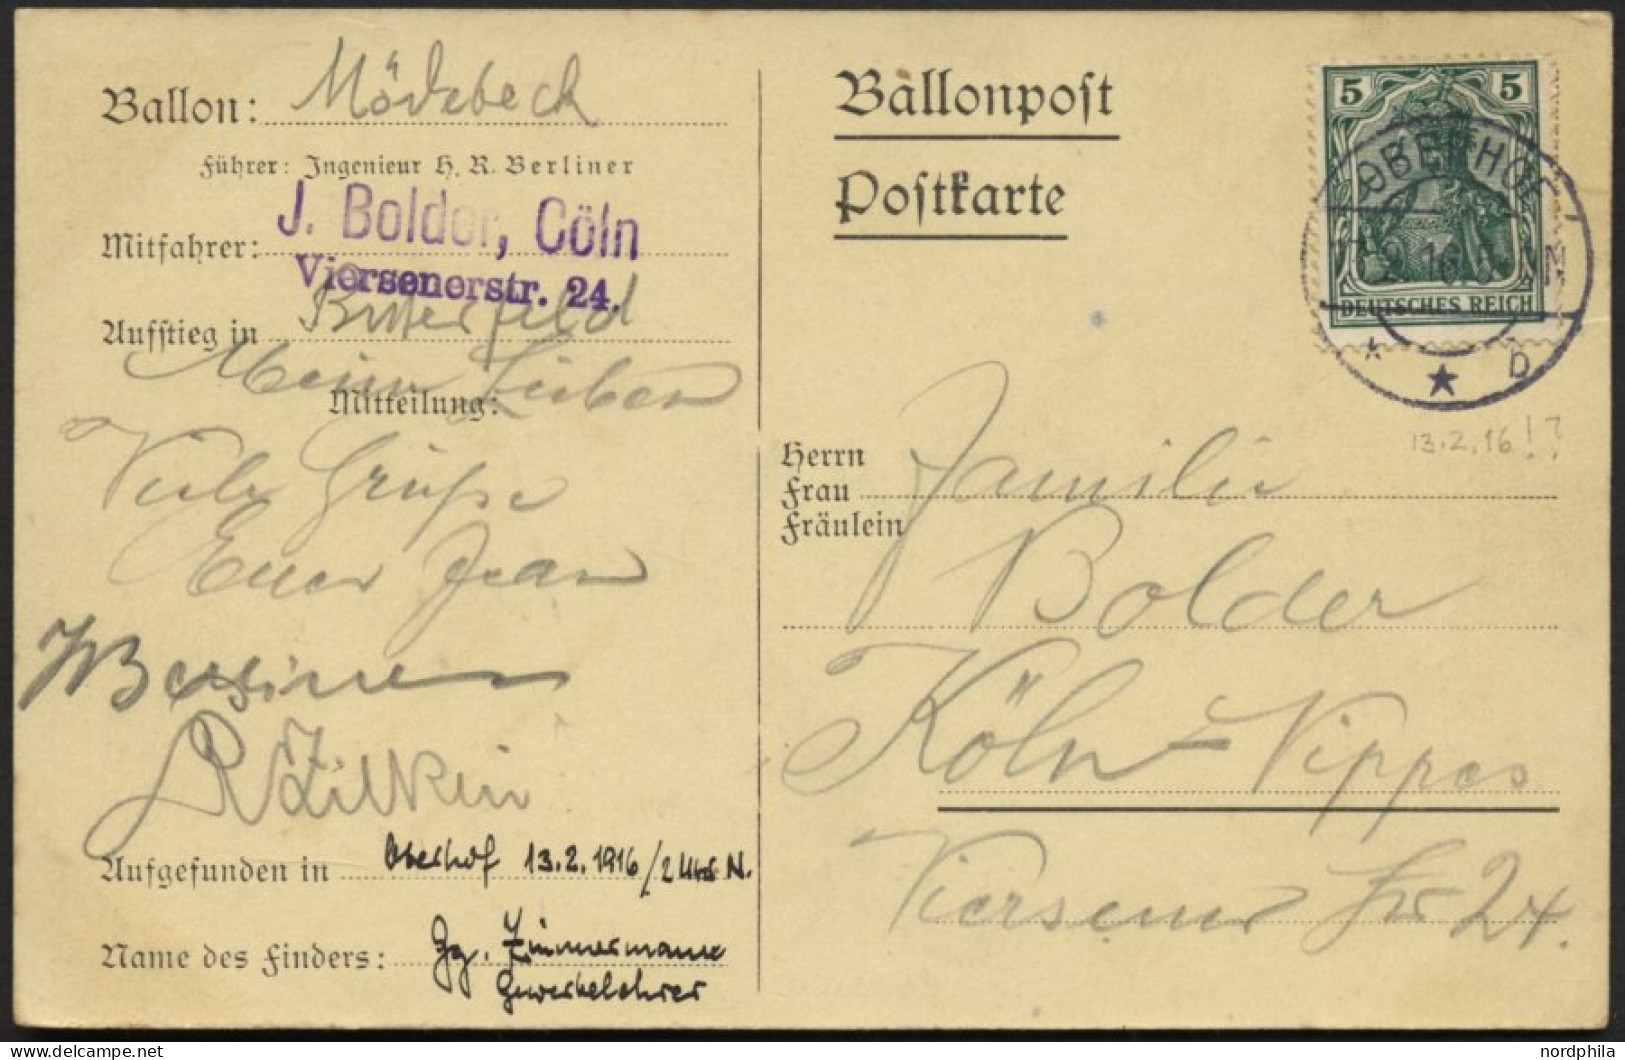 Ballon: Mödebeck
Führer: Ingenieur H. R. Berliner
Mitfahrer: J. Bolder, Cöln
Viersenerstr. 24.
Aufstieg in Bitterfeld
Mitteilung:
Meine Lieben
Viele Grüße
Euer Jean
Berliner
Aufgefunden in Oberhof 13.2.1916/2 Uhr N.
Name des Finders: Gg. Zimmermann
Gewerbelehrer
Ballonpost
Postkarte
5 5
DEUTSCHES REICH
OBERHOF
b
13.2.16!?
Herrn
Frau
Fräulein
Familie
Bolder
Köln-Nippes
Viersener Str 24.
nordphila